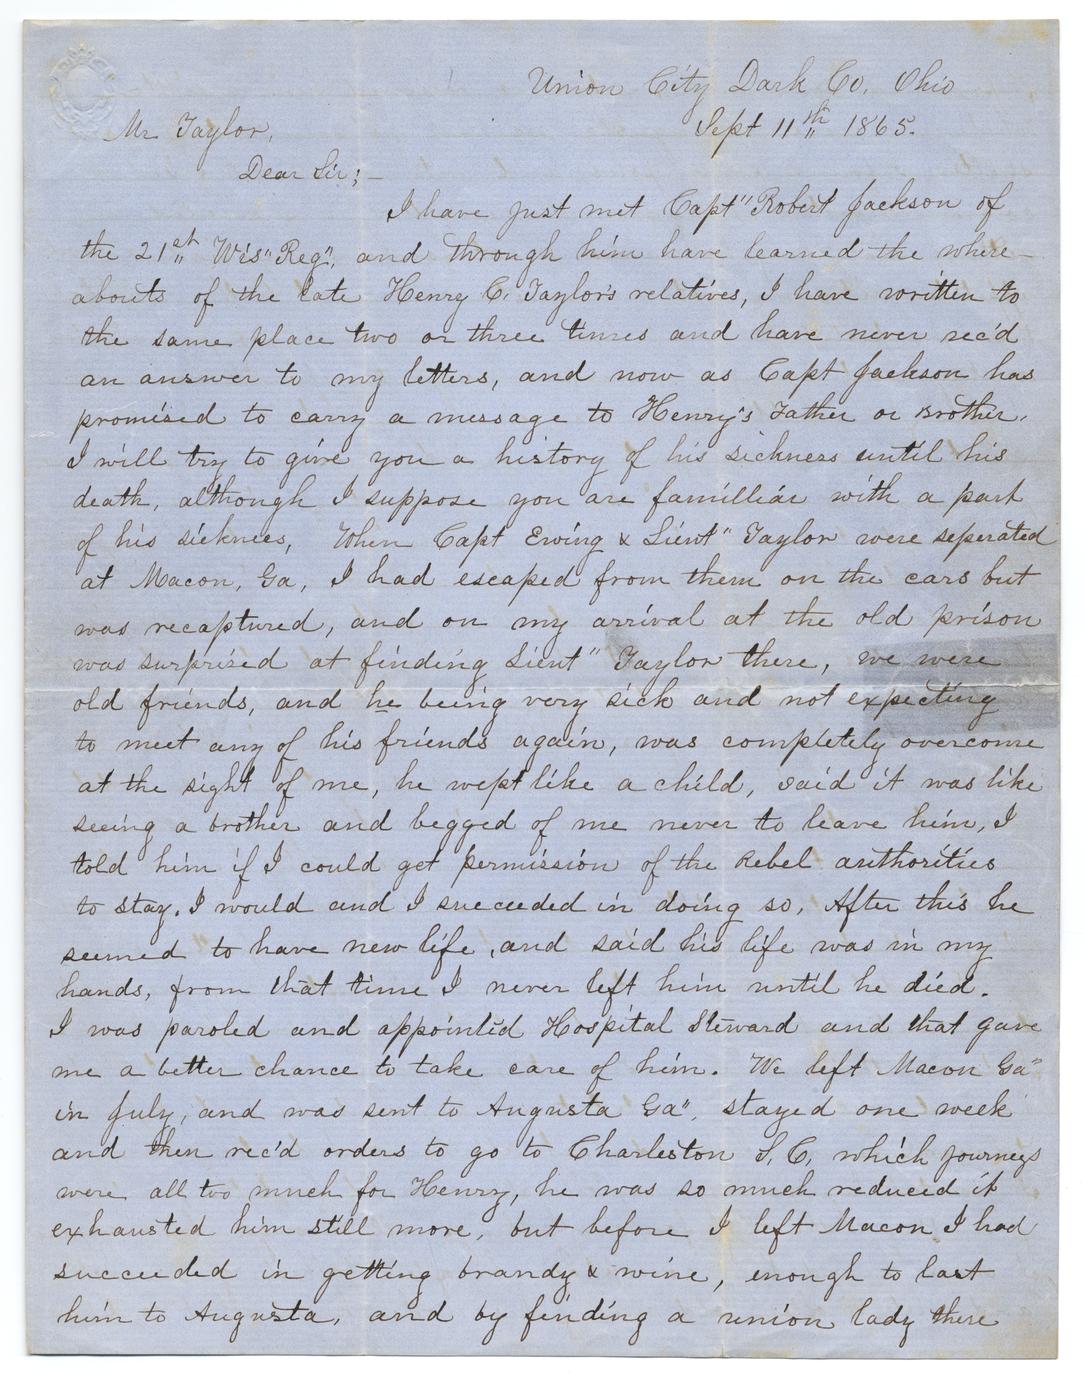 Union City Dark Co. Ohio
Sept 11th 1865.
Mr Taylor,
Dear Sir;—
I have just met Capt" Robert Jackson of
the 21st Wis" Reg", and through him have learned the where-
abouts of the late Henry C. Taylor's relatives, I have written to
the same place two or three times and have never rec'd
an answer to my letters, and now as Capt Jackson has
promised to carry a message to Henry's Father or Brother.
I will try to give you a history of his sickness until his
death, although I suppose you are familliar with a part
of his sickness, When Capt Ewing & Lieut" Taylor were seperated
at Macon, Ga, I had escaped from them on the cars but
was recaptured, and on my arrival at the old prison
was surprised at finding Lieut" Taylor there, we were
old friends, and he being very sick and not expecting
to meet any of his friends again, was completely overcome
at the sight of me, he wept like a child, said it was like
seeing a brother and begged of me never to leave him, I
told him if I could get permission of the Rebel authorities
to stay. I would and I succeeded in doing so. After this he
seemed to have new life, and said his life was in my
hands, from that time I never left him until he died.
I was paroled and appointed Hospital Steward and that gave
me a better chance to take care of him. We left Macon Ga"
in July, and was sent to Augusta Ga", stayed one week
and then rec'd orders to go to Charleston S.C, which journeys
were all too much for Henry, he was so much reduced it
exhausted him still more, but before I left Macon I had
succeeded in getting brandy & wine, enough to last
him to Augusta, and by finding a union lady there